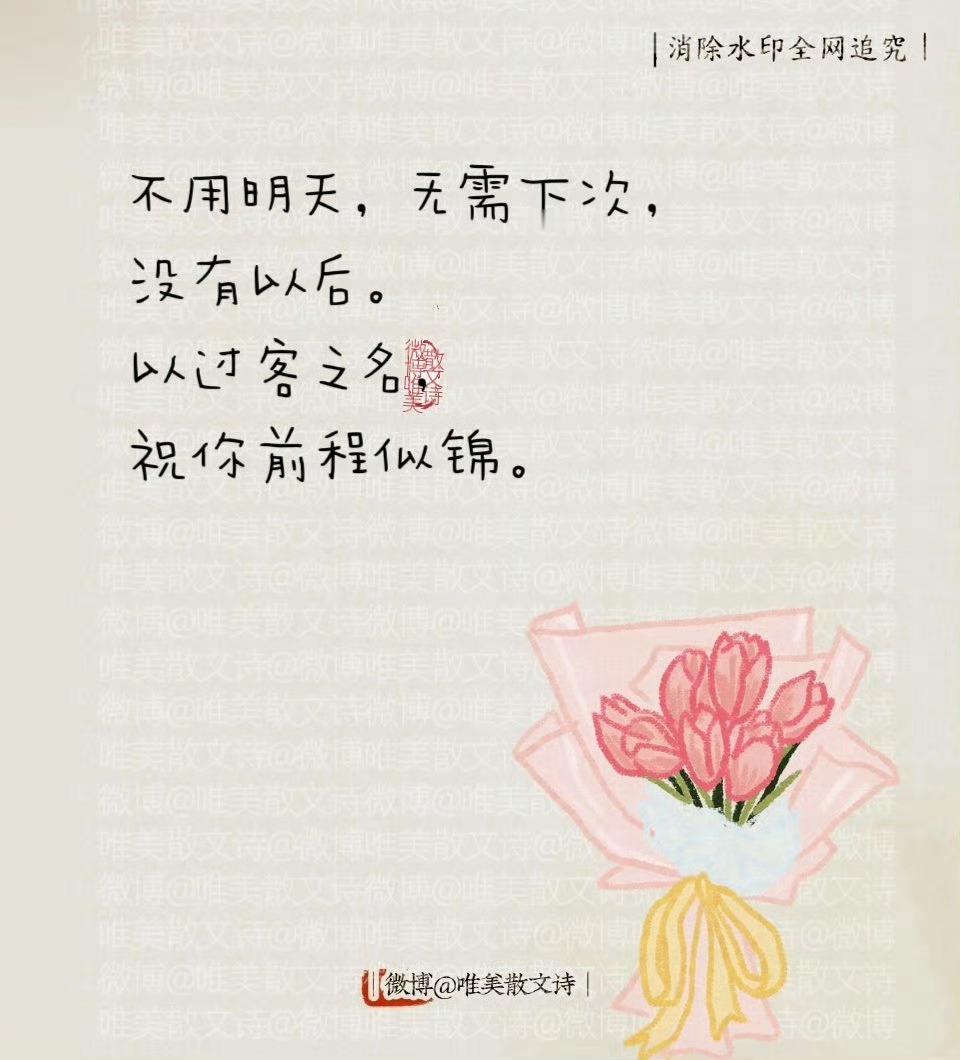 |消除水印全网追究|
不用明天，无需下次，
没有以后。
以过客之名，
微博唯美散文诗
祝你前程似锦。
|微博@唯美散文诗|